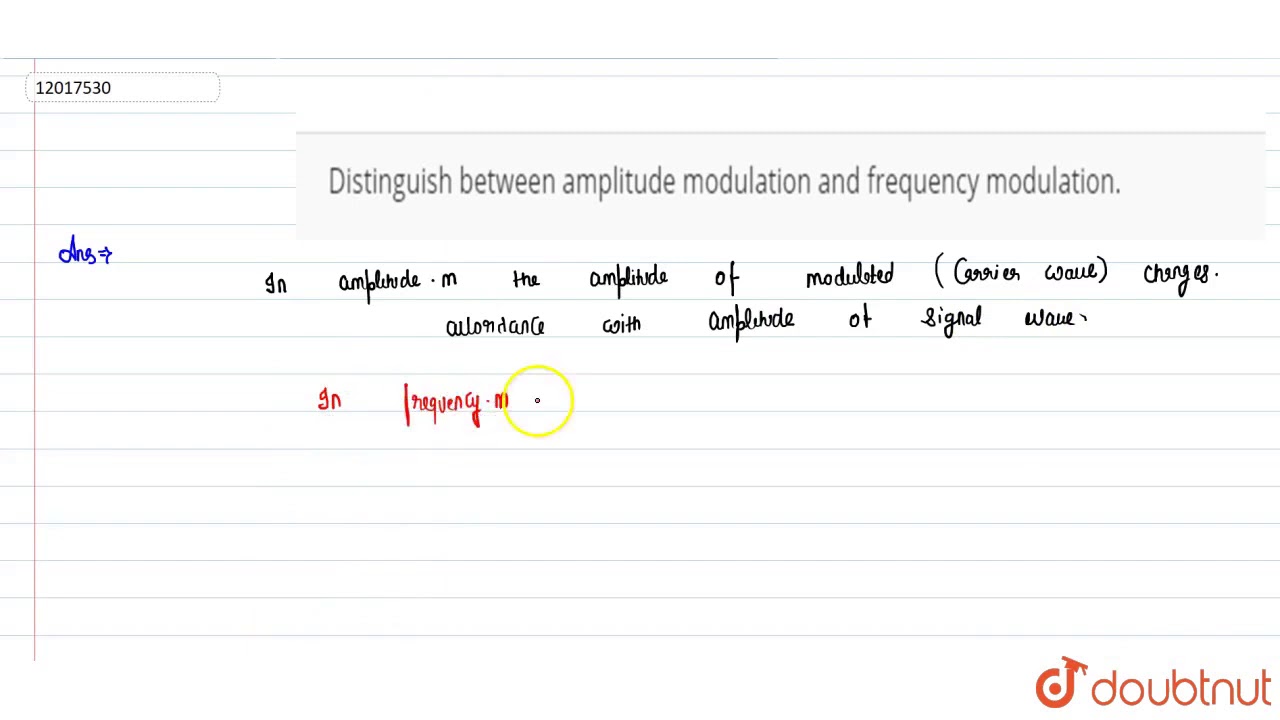 12017530
Distinguish between amplitude modulation and frequency modulation.
Ans ⇒
In amplitude.m the amplitude of modulated (Carrier wave) changes.
accordance with amplitude of signal wave.
In frequency.m
doubtnut